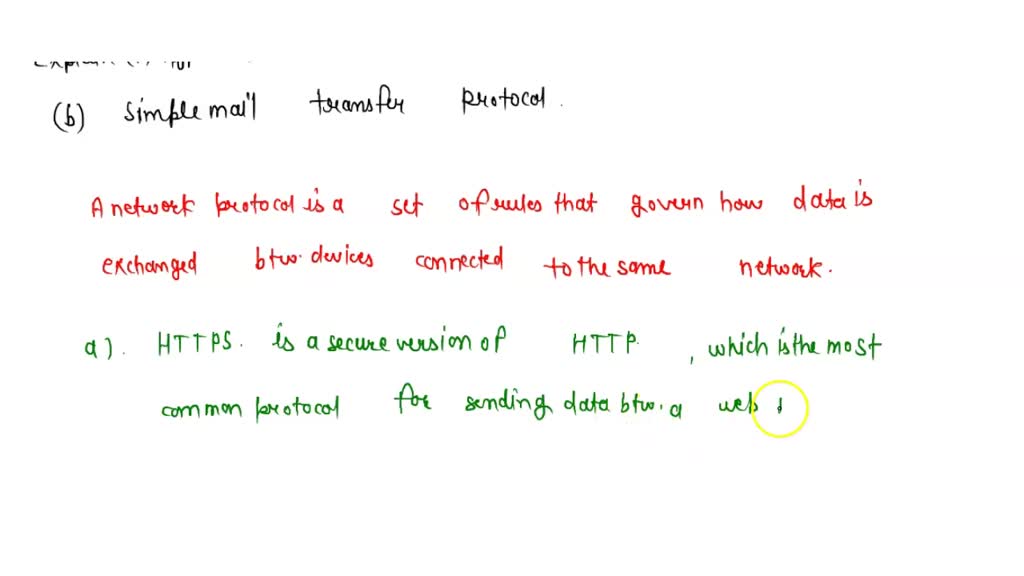 (b) simple mail transfer protocol.
A network protocol is a set of rules that govern how data is
exchanged btw. devices connected to the same network.
a). HTTPS. is a secure version of HTTP. , which is the most
common protocol for sending data btw. a web